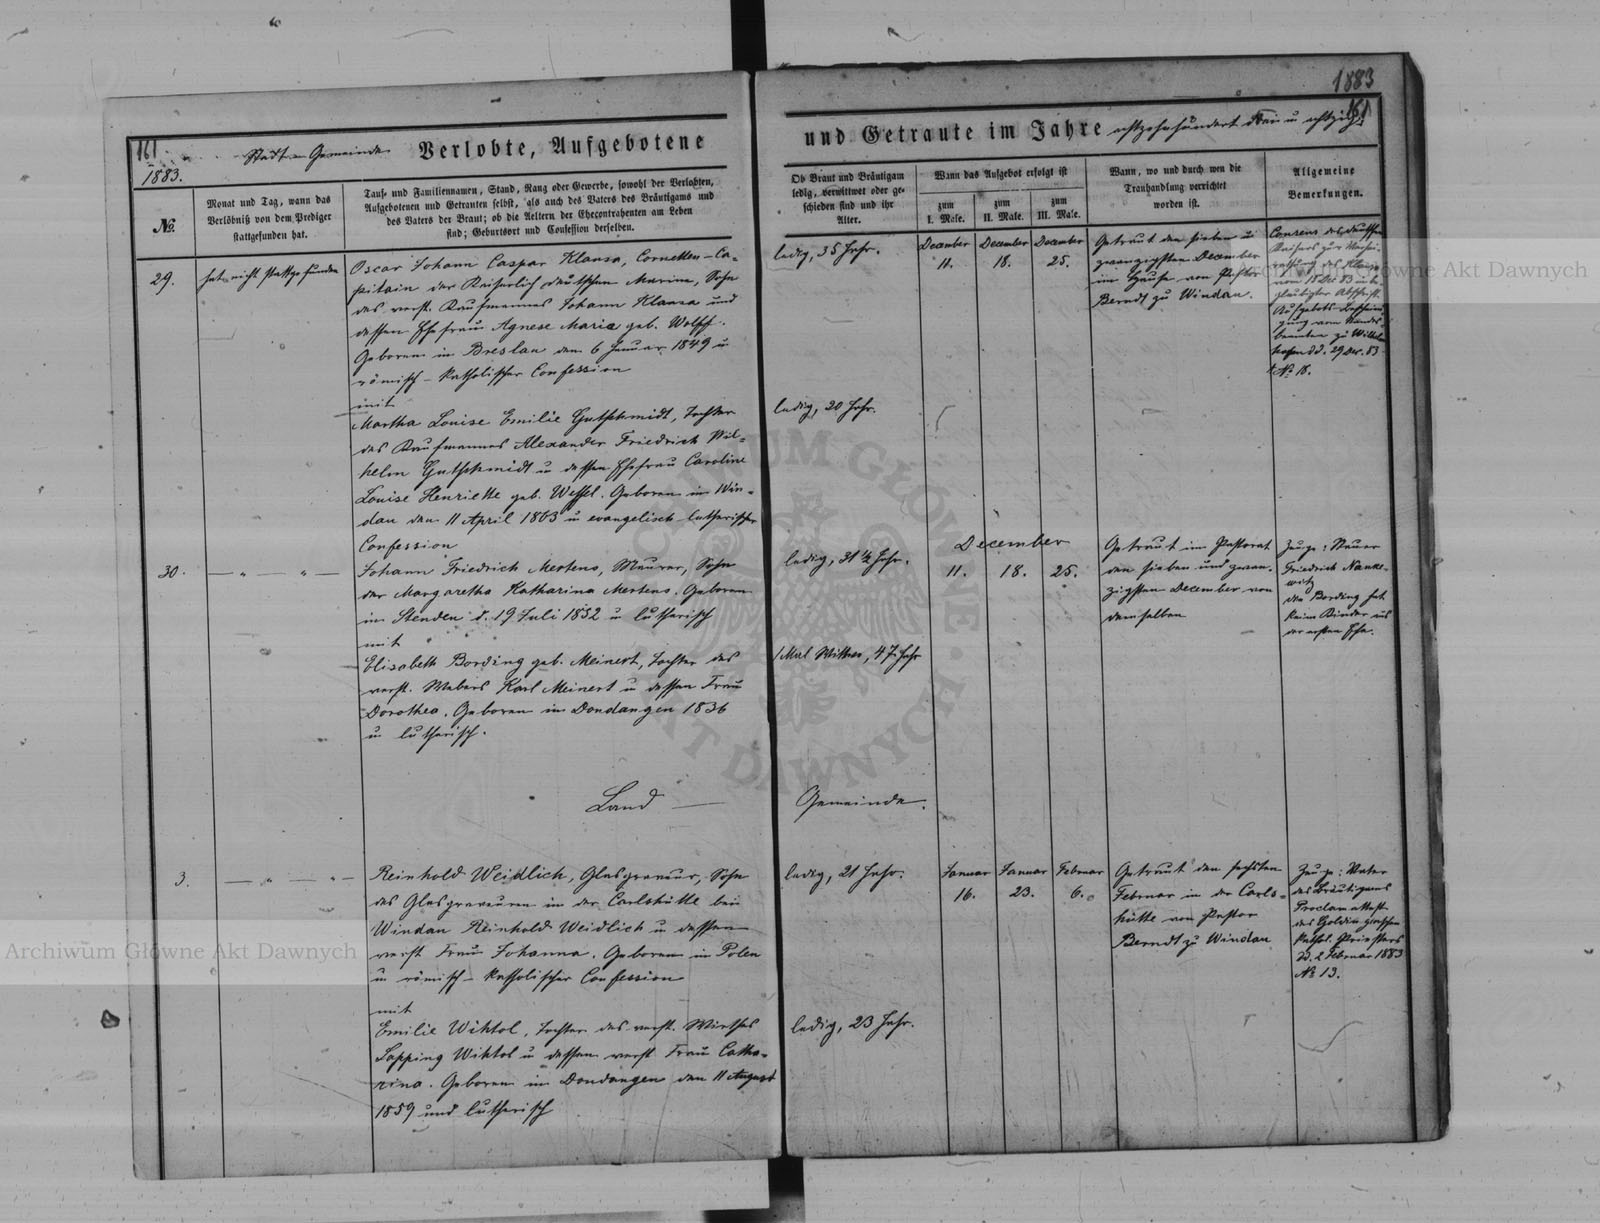 161
1883.
Stadt-Gemeinde Verlobte, Aufgebotene
№
Monat und Tag, wann das
Verlöbniß von dem Prediger
stattgefunden hat.
Tauf- und Familiennamen, Stand, Rang oder Gewerbe, sowohl der Verlobten,
Aufgebotenen und Getrauten selbst, als auch des Vaters des Bräutigams und
des Vaters der Braut; ob die Aeltern der Ehecontrahenten am Leben
sind; Geburtsort und Confession derselben.
29.
hat nicht stattgefunden
Oscar Johann Caspar Klausa, Corvetten-Ca-
pitain der Kaiserlich deutschen Marine, Sohn
des verst. Kaufmannes Johann Klausa und
dessen Ehefrau Agnese Maria geb. Wolff.
Geboren in Breslau den 6 Januar 1849 u
römisch-katholischer Confession
mit
Martha Louise Emilie Gutschmidt, Tochter
des Kaufmannes Alexander Friedrich Wil-
helm Gutschmidt u dessen Ehefrau Caroline
Louise Henriette geb. Wessel. Geboren in Win-
dau den 11 April 1863 u evangelisch-lutherischer
Confession
30.
— „ — „ —
Johann Friedrich Mertens, Maurer, Sohn
der Margaretha Katharina Mertens. Geboren
in Stenden d. 19 Juli 1852 u lutherisch
mit
Elisabeth Bording geb. Meinert, Tochter des
verst. Webers Karl Meinert u dessen Frau
Dorothea. Geboren in Dondangen 1836
u lutherisch.
Land —
3.
— „ — „ —
Reinhold Weidlich, Glasgraveur, Sohn
des Glasgraveuren in der Carlshütte bei
Windau Reinhold Weidlich u dessen
verst Frau Johanna. Geboren in Polen
u römisch-katholischer Confession
mit
Emilie Wihtol, Tochter des verst. Wirthes
Lapping Wihtol u dessen verst Frau Catha-
rina. Geboren in Dondangen den 11 August
1859 und lutherisch
1883
161
und Getraute im Jahre achtzehnhundert drei u achtzig.
Ob Braut und Bräutigam
ledig, verwittwet oder ge-
schieden sind und ihr
Alter.
Wann das Aufgebot erfolgt ist
zum
I. Male.
zum
II. Male.
zum
III. Male.
Wann, wo und durch wen die
Trauhandlung verrichtet
worden ist.
Allgemeine
Bemerkungen.
ledig, 35 Jahr.
December
11.
December
18.
December
25.
Getraut den sieben u
zwanzigsten December
im Hause von Pastor
Berndt zu Windau.
Consens des deutschen
Kaisers zur Verhei-
rathung des Klausa
vom 18 Dec 83 in be-
glaubigter Abschrift.
Aufgebots-Beschein-
igung vom Standes-
beamten zu Wilhelms-
hafen dd. 29 Dec. 83
№ 18.
ledig, 20 Jahr.
ledig, 31 ½ Jahr.
December
11. 18. 25.
Getraut im Pastorat
den sieben und zwan-
zigsten December von
demselben
Zeuge: Maurer
Friedrich Nanke-
witz
die Bording hat
keine Kinder aus
der ersten Ehe.
1 Mal Wittwe, 47 Jahr
Gemeinde.
ledig, 21 Jahr.
Januar
16.
Januar
23.
Februar
6.
Getraut den sechsten
Februar in der Carls-
hütte von Pastor
Berndt zu Windau
Zeuge: Vater
des Bräutigams
Proclam attest
des Goldingschen
kathol. Priesters
dd. 2 Februar 1883
№ 13.
ledig, 23 Jahr.
Archiwum Główne Akt Dawnych
Archiwum Główne Akt Dawnych
ARCHIWUM GŁÓWNE AKT DAWNYCH